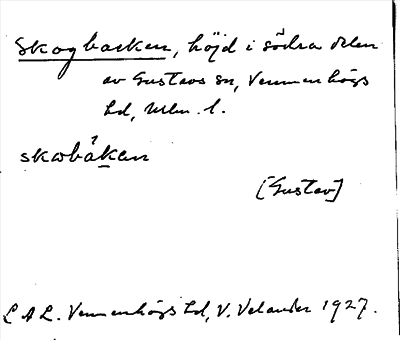 Skogbacken, höjd i södra delen
av Gustavs sn, Vemmenhögs
hd, Mlm. l.
skωbåken
[Gustav]
L A L. Vemmenhögs hd, V. Velander 1927.